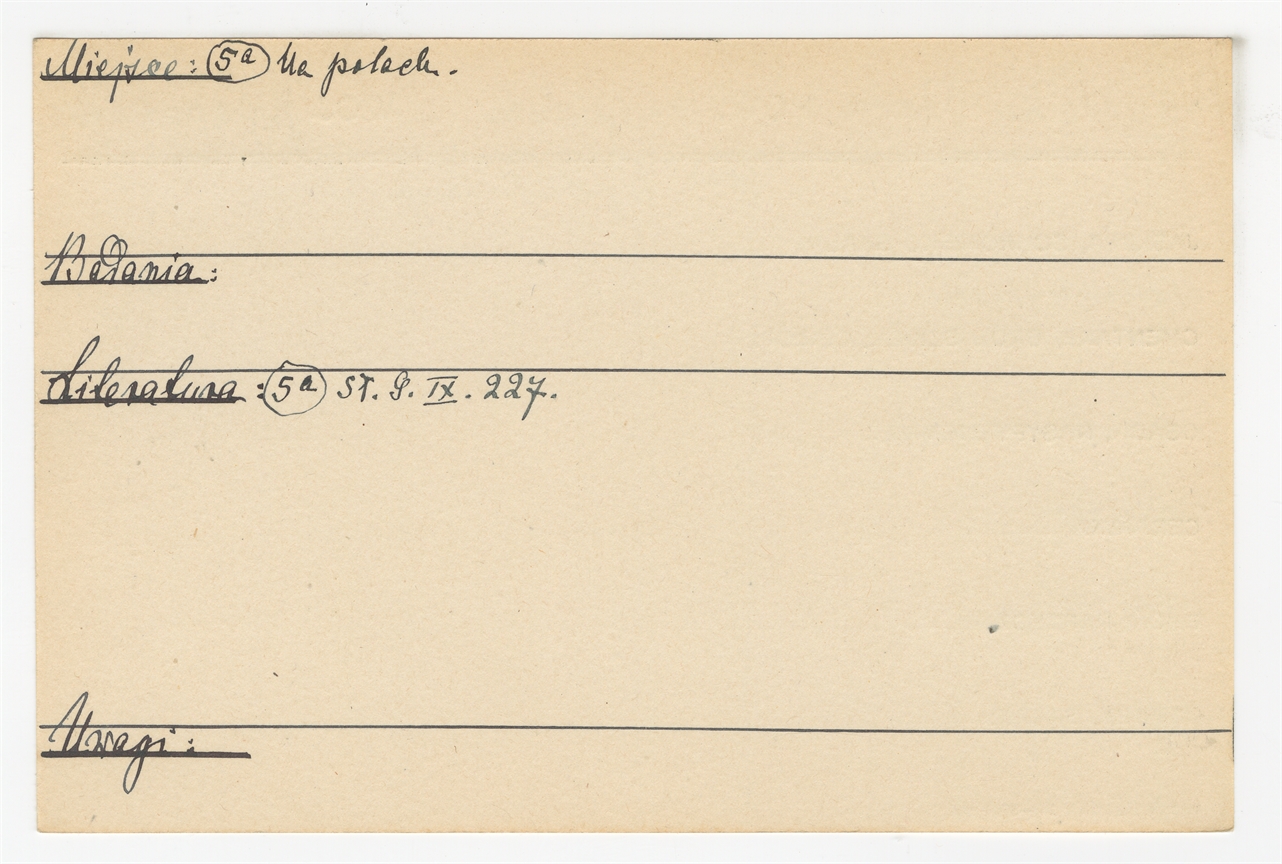 Miejsce: 5a Na polach.
Badania:
Literatura: 5a ST. G. IX. 227.
Uwagi: